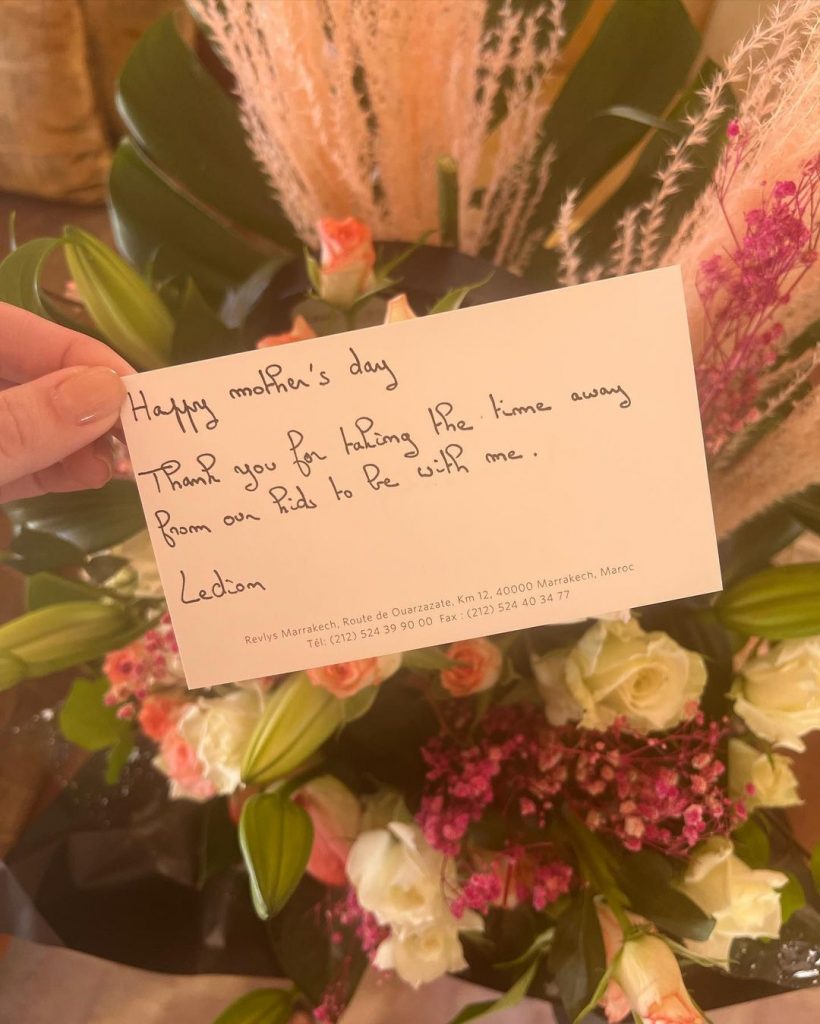 Happy mother's day
Thank you for taking the time away
from our kids to be with me.
Ledion
Revlys Marrakech, Route de Ouarzazate, Km 12, 40000 Marrakech, Maroc
Tél: (212) 524 39 90 00 Fax : (212) 524 40 34 77